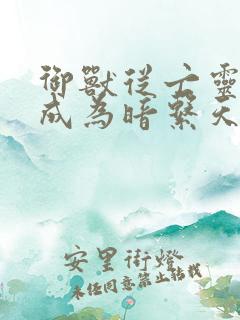 御獸從亡靈
成為暗系天
安里街燈
未經同意禁止轉載